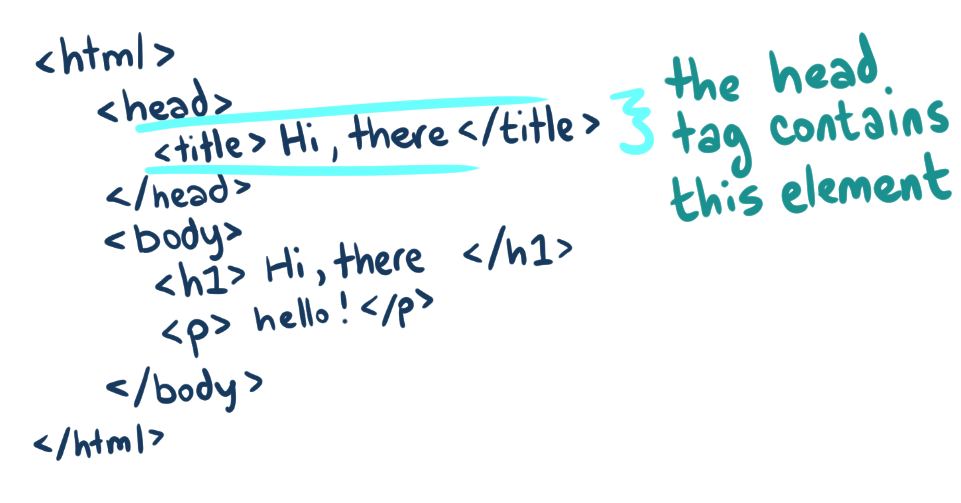 <html>
<head>
<title> Hi, there </title>
</head>
<body>
<h1> Hi, there </h1>
<p> hello! </p>
</body>
</html>
the head
tag contains
this element